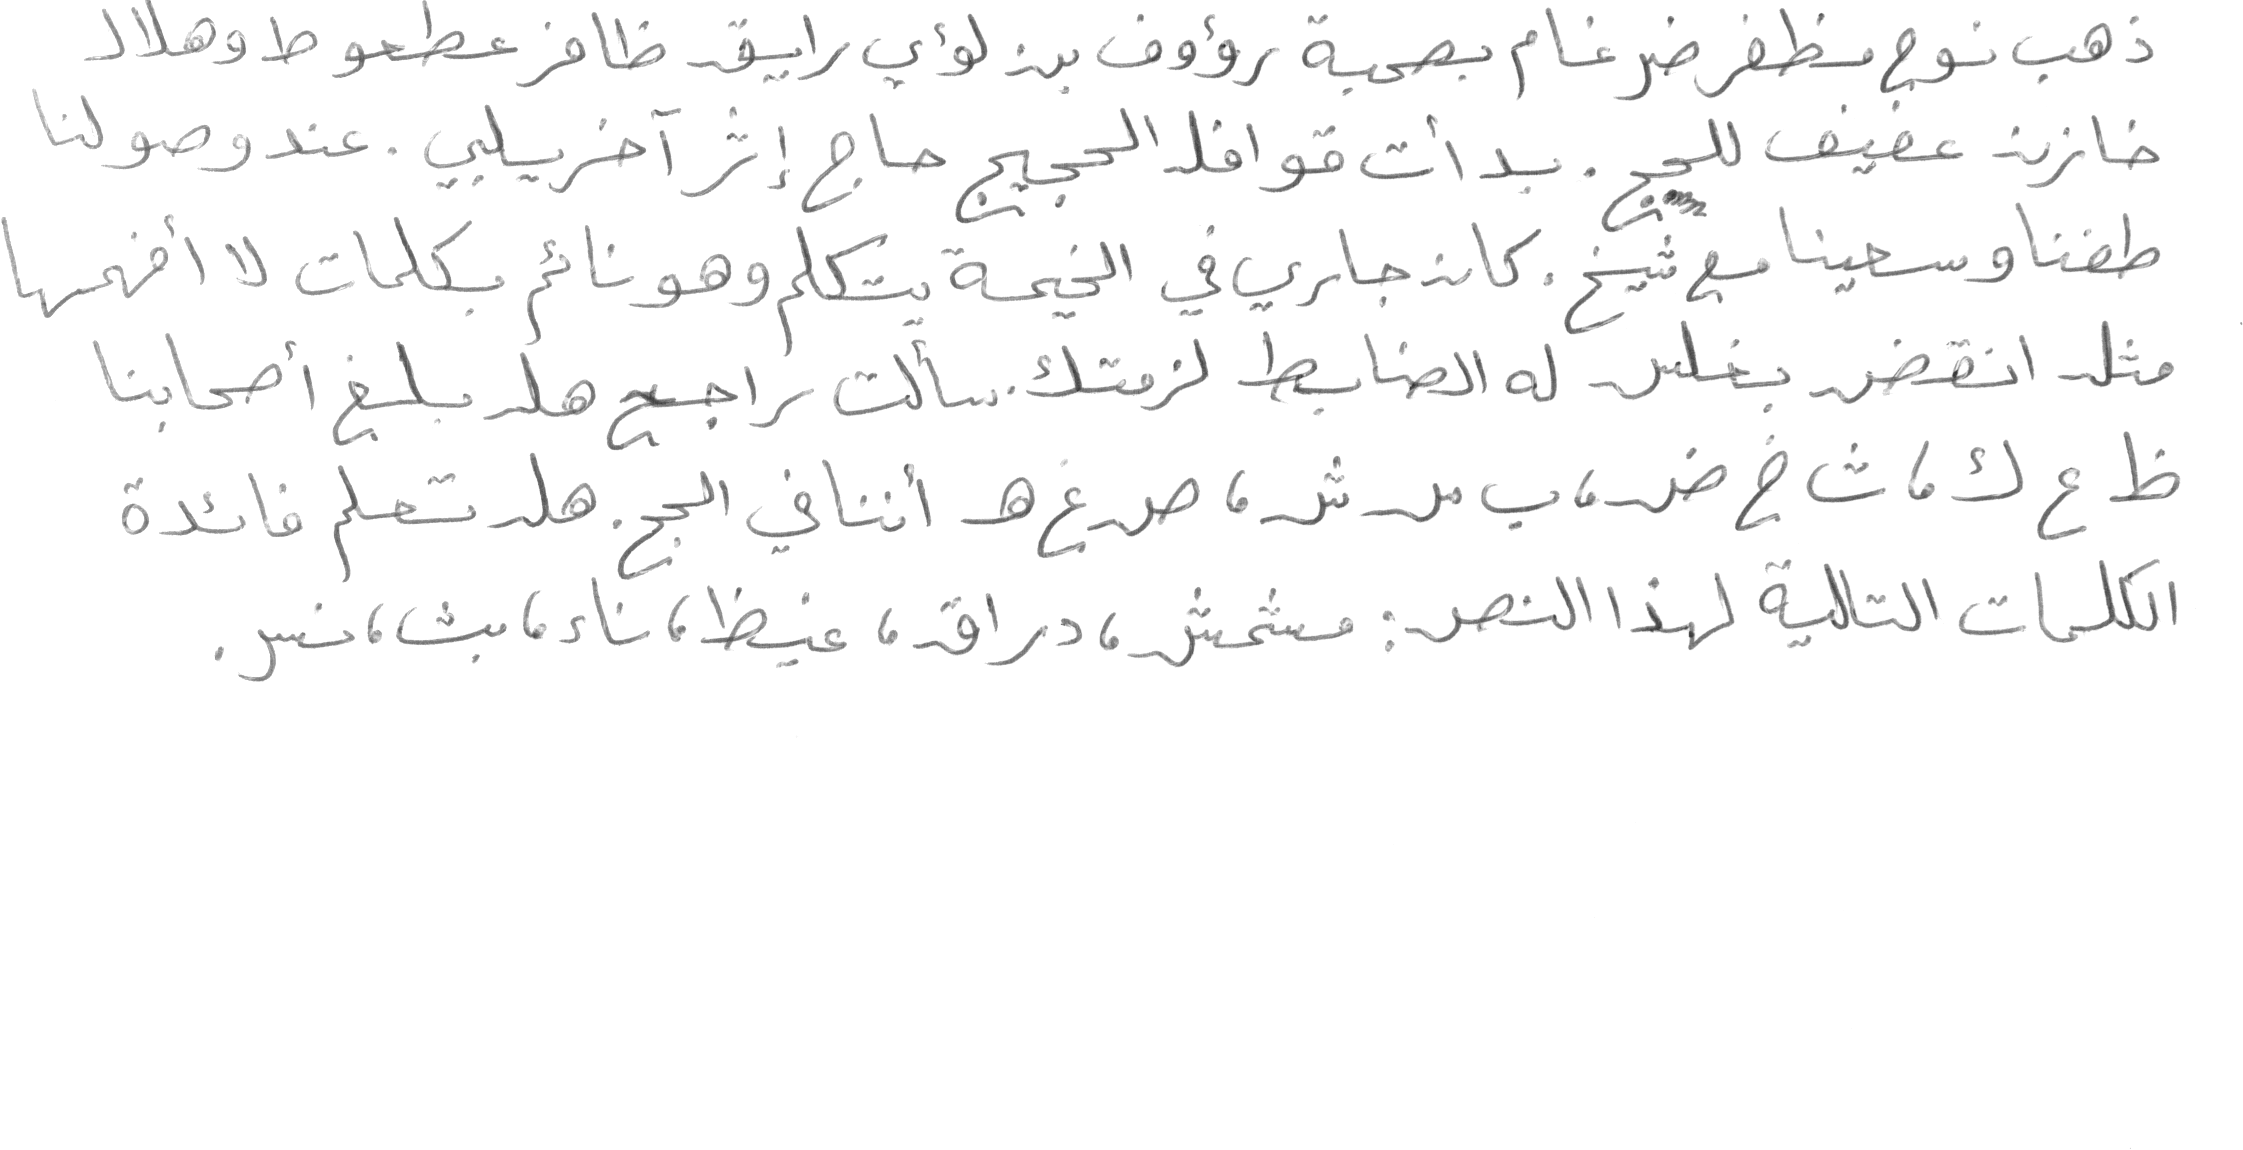 ذهب نوح مظفر ضرغام بصحبة رؤوف بن لؤي رايق ظافر عطعوط وهلال
خازن عفيف للحج. بدأت قوافل الحجيج حاج إثر آخر يلبي. عند وصولنا
طفنا وسعينا مع شيخ. كان جاري في الخيمة يتكلم وهو نائم بكلمات لا أفهمها
مثل انقض بغلس له الضابط لزمتك. سألت راجح هل بلغ أصحابنا
ظ ع ك، ث خ ض، ب س ش، ص غ هـ أننا في الحج. هل تعلم فائدة
الكلمات التالية لهذا النص: مشمش، دراق، غيظ، ناء، بث، نس.